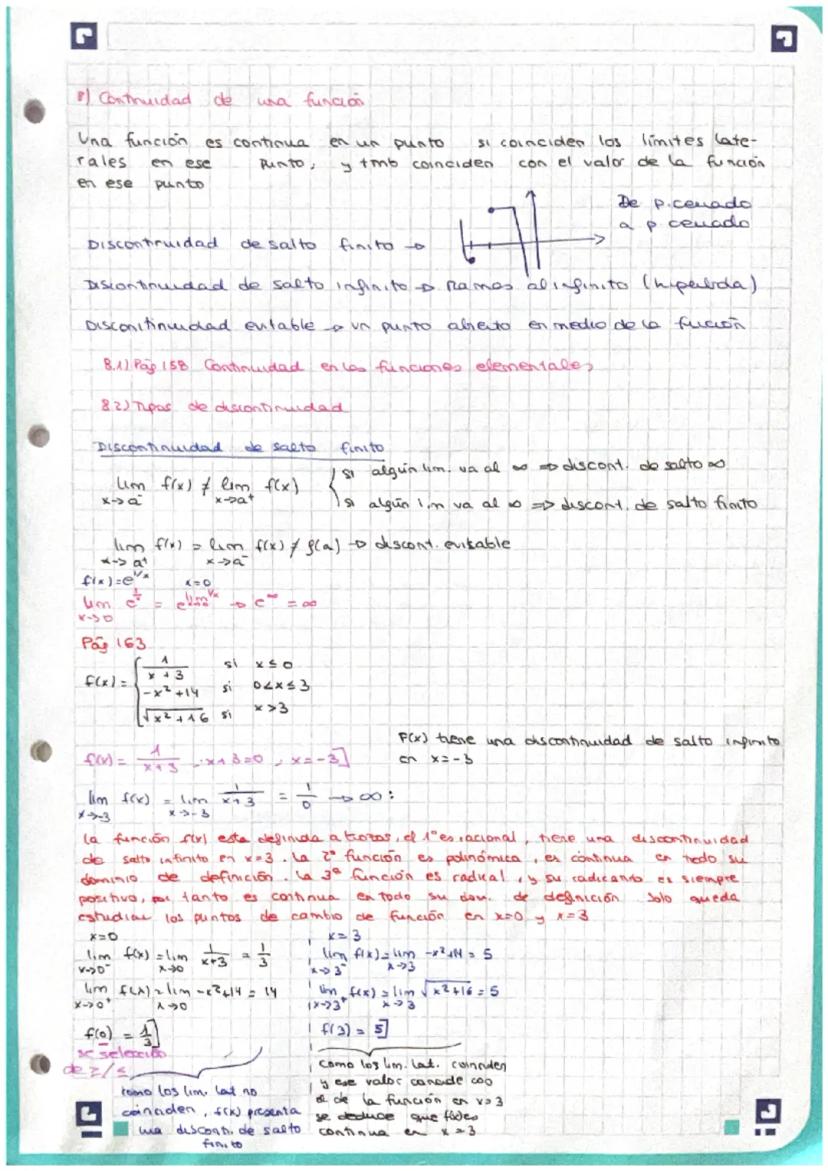 8) Continuidad de una función
Una función es continua en un punto si coinciden los límites late-
rales en ese punto, y tmb coinciden con el valor de la función
en ese punto
De p. cerrado
a p. cerrado
Discontinuidad de salto finito →
Discontinuidad de salto infinito → Ramas al infinito (hiperbola)
Discontinuidad evitable → un punto abierto en medio de la función
8.1) Pág 158 Continuidad en las funciones elementales
8.2) Tipos de discontinuidad
Discontinuidad de salto finito
lim f(x) ≠ lim f(x) { si algún lim. va al ∞ ⇒ discont. de salto ∞
x→a⁻ x→a⁺ si algún lim va al ∞ ⇒ discont. de salto finito
lim f(x) = lim f(x) ≠ f(a) → discont. evitable
x→a⁺ x→a⁻
f(x)=e^1/x x=0
lim e^1/x = e^lim 1/x → e^∞ = ∞
x→0
Pág 163
f(x) = { 1/x+3 si x ≤ 0
-x²+14 si 0<x≤3
√x²+16 si x>3
F(x) tiene una discontinuidad de salto infinito
en x=-3
f(x) = 1/x+3 ; x+3=0 , x=-3]
lim f(x) = lim 1/x+3 = 1/0 → ∞:
x→-3 x→-3
La función f(x) esta definida a trozos, el 1º es racional, tiene una discontinuidad
de salto infinito en x=3. La 2ª función es polinómica, es continua en todo su
dominio de definición. La 3ª función es radical, y su radicando es siempre
positivo, por tanto es continua en todo su dom. de definición Solo queda
estudiar los puntos de cambio de función en x=0 y x=3
x=0
lim f(x) = lim 1/x+3 = 1/3
x→0⁻ x→0
lim f(x) = lim -x²+14 = 14
x→0⁺ x→0
f(0) = 1/3]
se selección
de ≥/≤
como los lim. lat no
coinciden, f(x) presenta
una disconti. de salto
finito
x=3
lim f(x) = lim -x²+14 = 5
x→3⁻ x→3
lim f(x) = lim √x²+16 = 5
x→3⁺ x→3
f(3) = 5]
Como los lim. lat. coinciden
y ese valor coincide con
el de la función en x=3
se deduce que f(x) es
continua en x=3